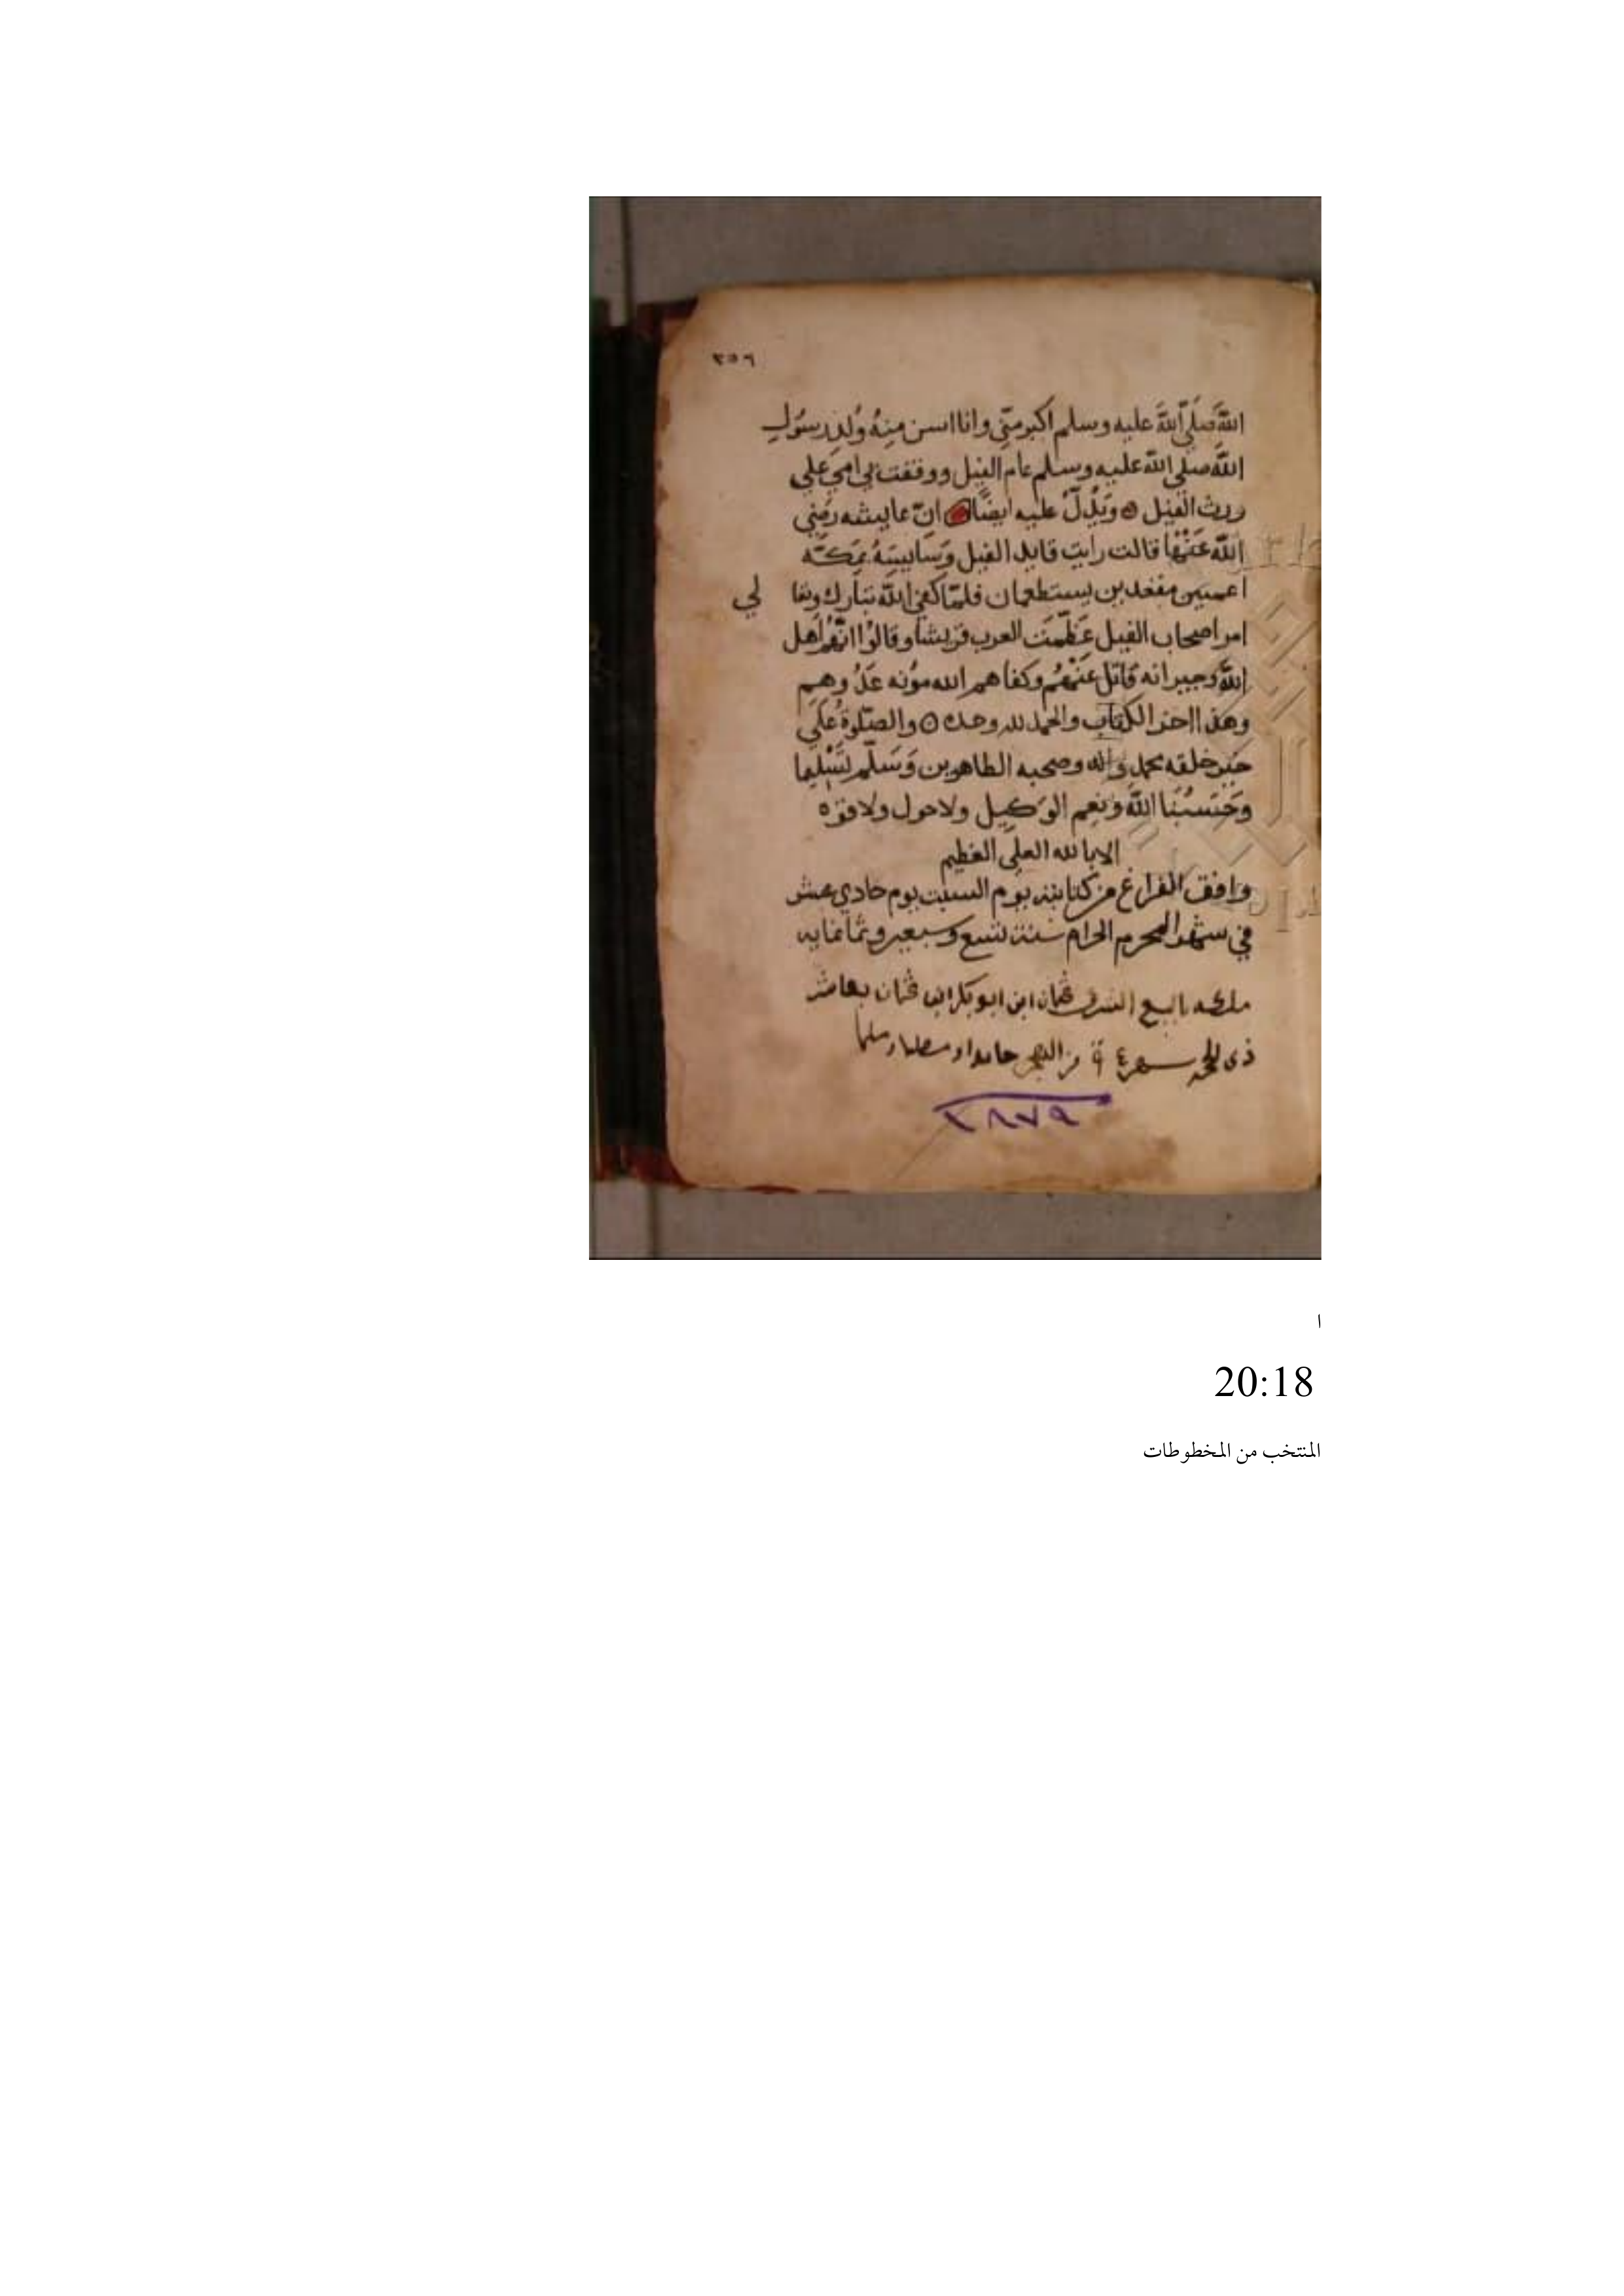 ٣٥٦
اللهَ صَلَّي اللهَ عليه وسلم اكبر منّي وانا اسن مِنهُ وُلِدَ رسُول
الله صلي الله عليه وسلم عام الفيل ووقفت بي امي علي
روث الفيل ويَدُلّ عليه ايضًا انّ عايشه رضي
الله عَنْهَا قالت رايت قايد الفيل وسَايِسَهُ بمَكَّه
اعميين مقعدين يستطعمان فلمّا كفي الله تبارك وتعا لي
امر اصحاب الفيل عَظّمَت العرب قريشا وقالوْا انّهُم اَهل
الله وجيرانه قَاتل عَنْهُم وكفاهم الله موُنه عَدُوهم
وهذا اخر الكتاب والحمد لله وحده والصّلوةُ عَلَي
خير خلقه محمد واله وصحبه الطاهرين وَسَلّم تَسْلِيما
وَحَسبُنَا الله ونِعِم الوَكِيل ولا حول ولا قوه
الا بالله العلي العَظيم
وافق الفراغ من كتابته يوم السبت يوم حادي عشر
في شهر المحرم الحرام سنة تسع وسبعين وثمانمايه
ملكه بالبيع الشرعي عثمان ابن ابو بكر ابن عثمان بعاشر
حامدا ومصليا ومسلما
٢٨٧٩
ا
20:18
المنتخب من المخطوطات